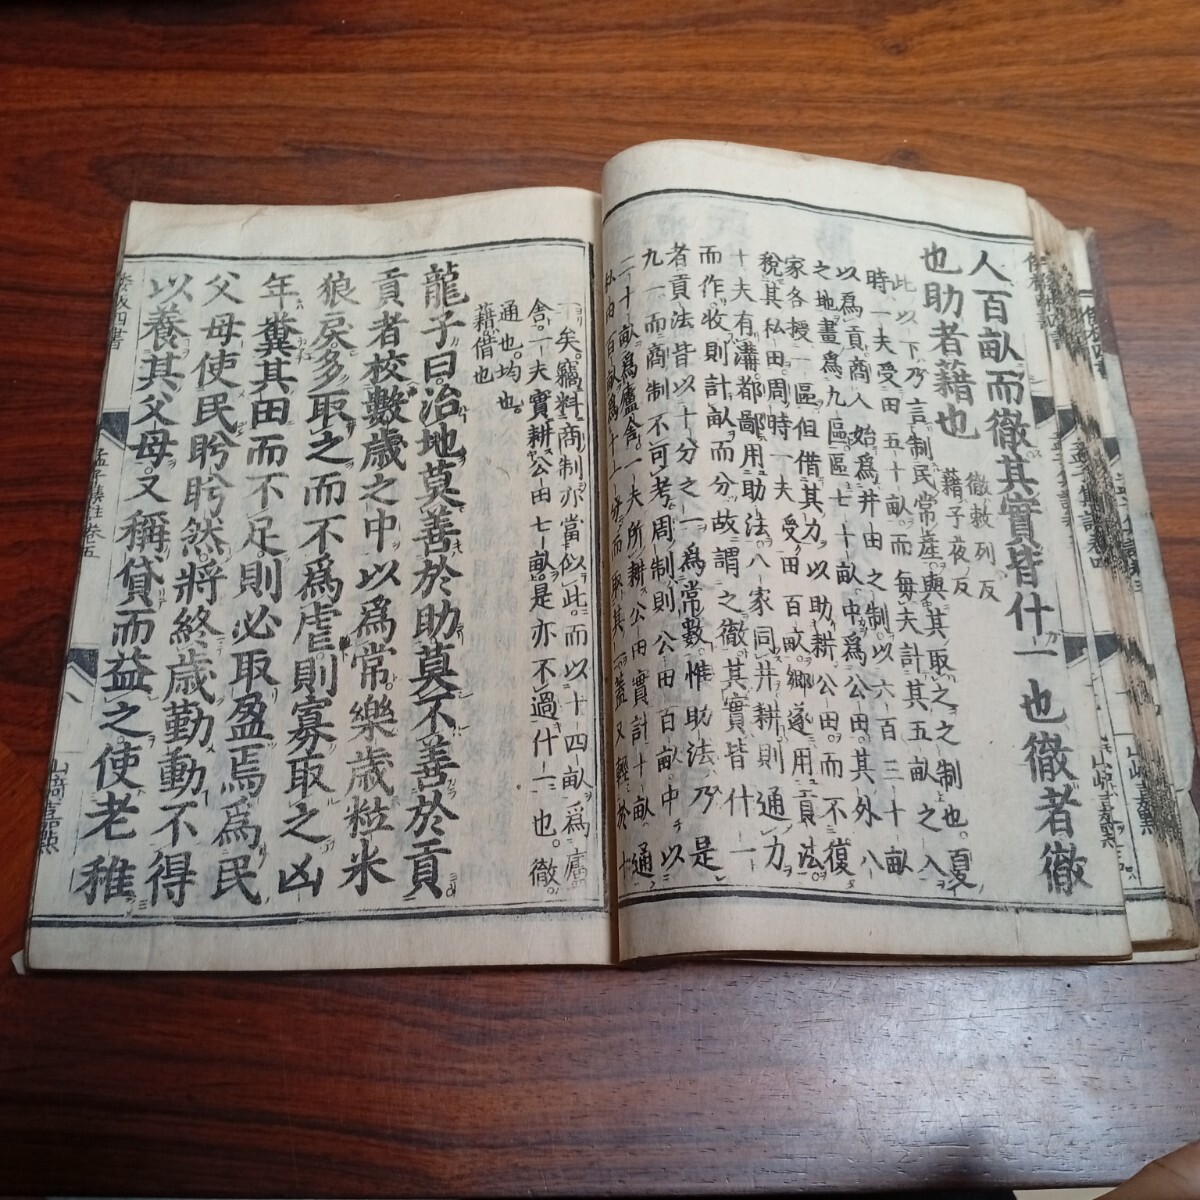 人百畝而徹其實皆什一也徹者徹
也助者藉也
徹敕列反
藉子夜反
此以下乃言制民常產與其取之之制也夏
時一夫受田五十畝而每夫計其五畝之入
以爲貢商人始爲井田之制以六百三十畝
之地畫爲九區區七十畝中爲公田其外八
家各授一區但借其力以助耕公田而不復
稅其私田周時一夫受田百畝鄉遂用貢法
十夫有溝都鄙用助法八家同井耕則通力
而作收則計畝而分故謂之徹其實皆什一
者貢法皆以十分之一爲常數惟助法乃是
九一而商制不可考周制則公田百畝中以
二十畝爲廬舍一夫所耕公田實計十畝通
私田百畝爲十一分而取其一蓋又輕於十
一矣竊料商制亦當似此而以十四畝爲廬
舍一夫實耕公田七畝是亦不過什一也徹
通也均也
藉借也
龍子曰治地莫善於助莫不善於貢
貢者校數歲之中以爲常樂歲粒米
狼戾多取之而不爲虐則寡取之凶
年糞其田而不足則必取盈焉爲民
父母使民盻盻然將終歲勤動不得
以養其父母又稱貸而益之使老稚
孟子集註卷五
山崎嘉點